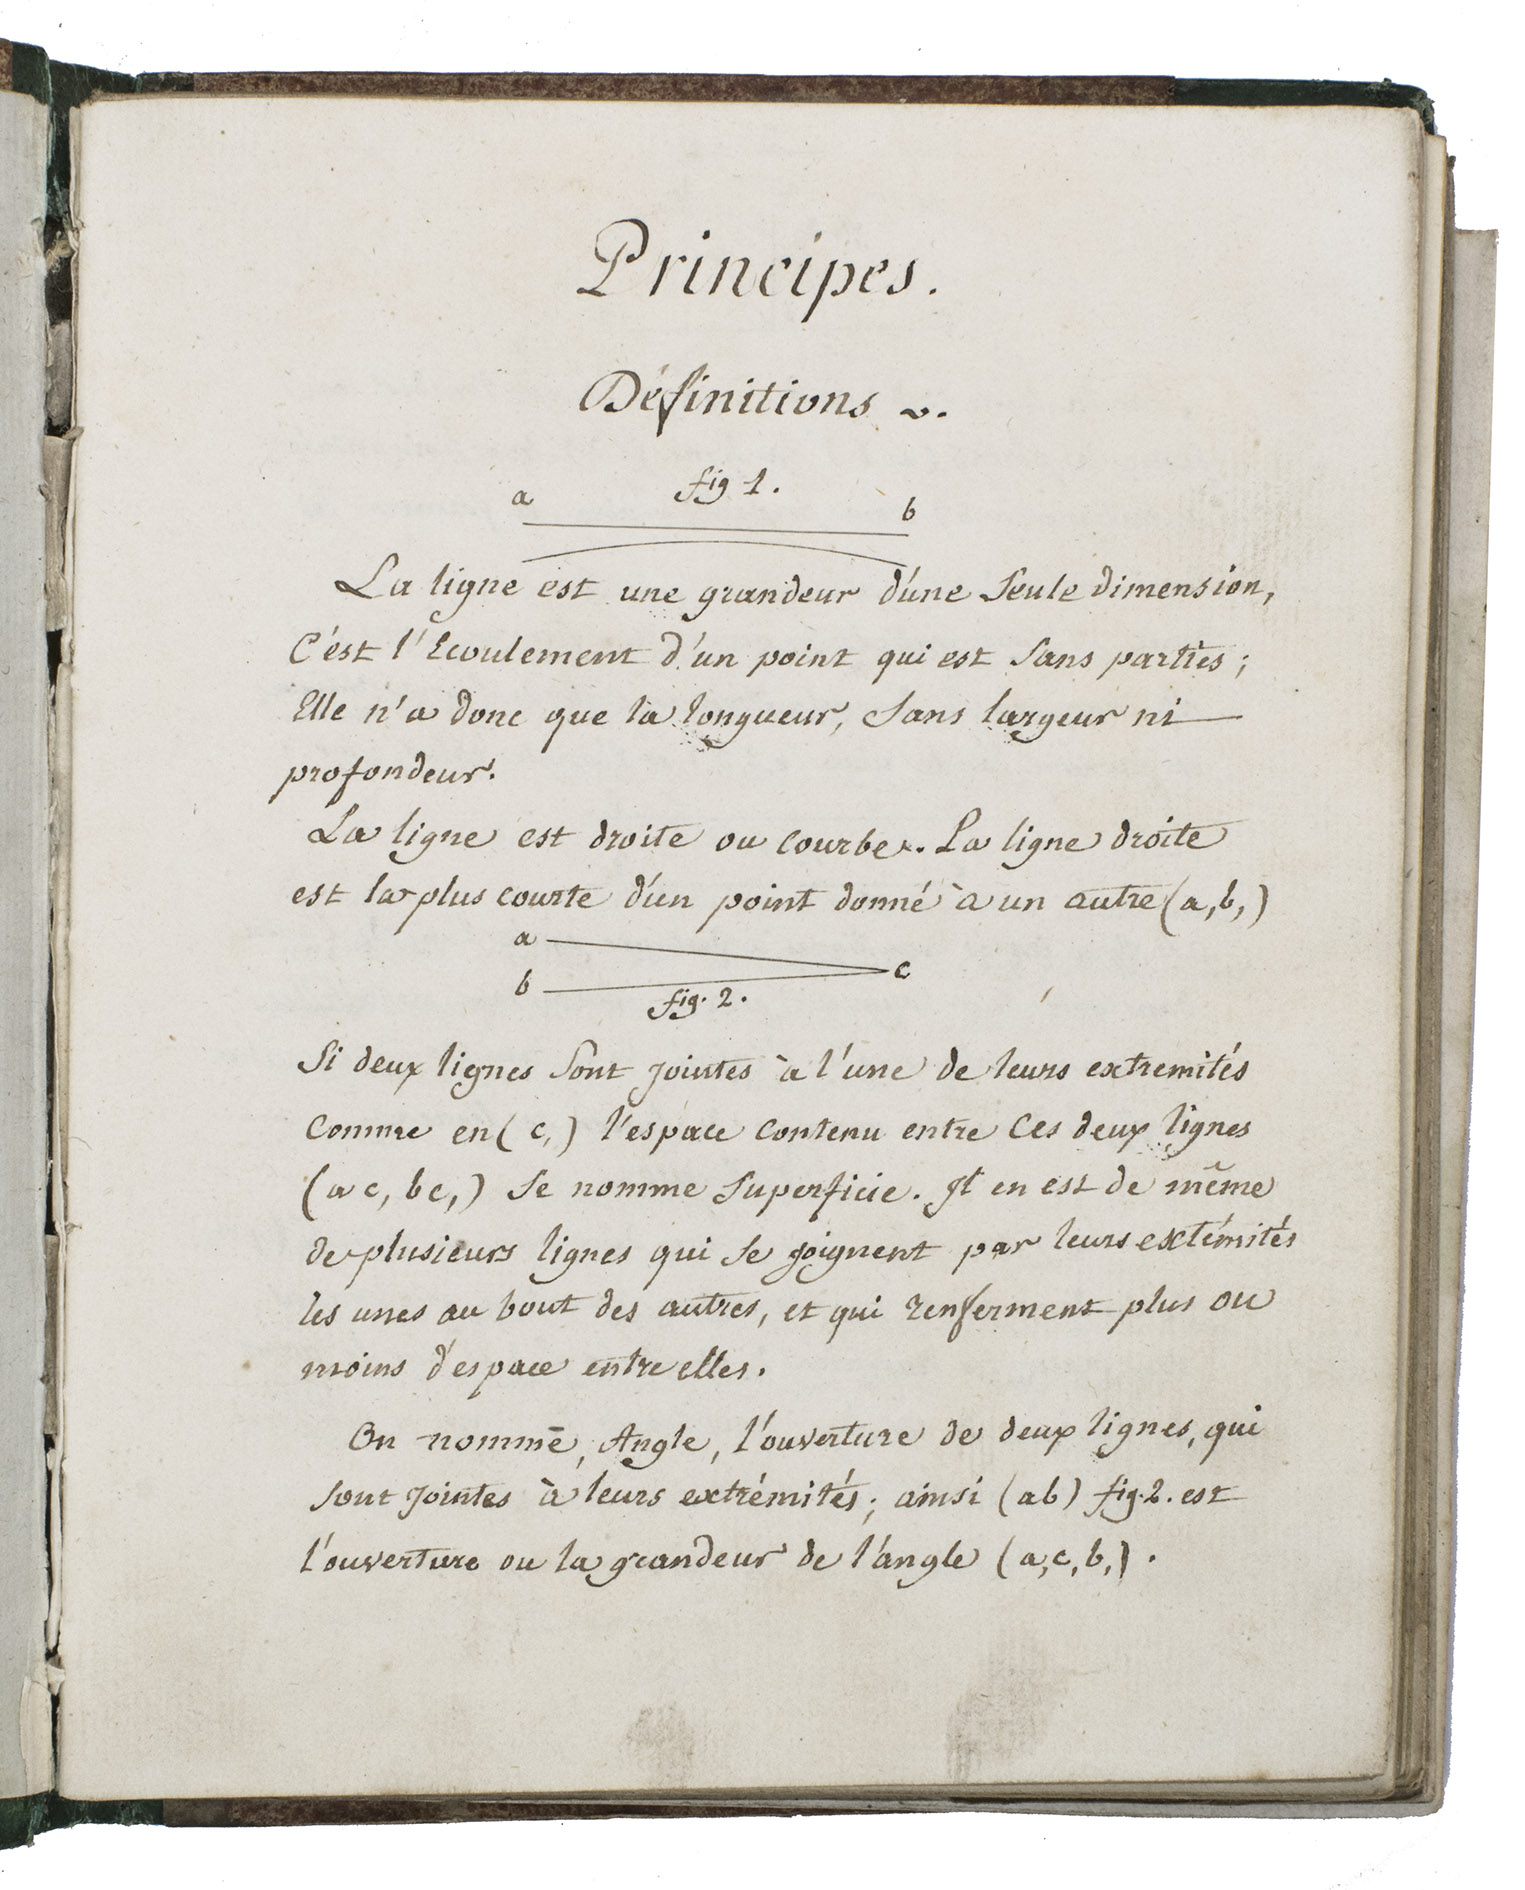 Principes.
Définitions
fig 1.
a b
La ligne est une grandeur d'une Seule dimension,
C'est l'Ecoulement d'un point qui est Sans parties ;
Elle n'a donc que la longueur, Sans largeur ni
profondeur.
La ligne est droite ou courbe. La ligne droite
est la plus courte d'un point donné à un autre (a, b,)
a
c
b
fig. 2.
Si deux lignes Sont jointes à l'une de leurs extremités
Comme en ( c, ) l'espace contenu entre Ces deux lignes
(a c, b c, ) Se nomme Superficie. Il en est de même
de plusieurs lignes qui Se joignent par leurs extémités
les unes au bout des autres, et qui renferment plus ou
moins d'espace entre elles.
On nomme, Angle, l'ouverture de deux lignes, qui
Sont jointes à leurs extrémités ; ainsi (ab) fig. 2. est
l'ouverture ou la grandeur de l'angle (a, c, b, ) .